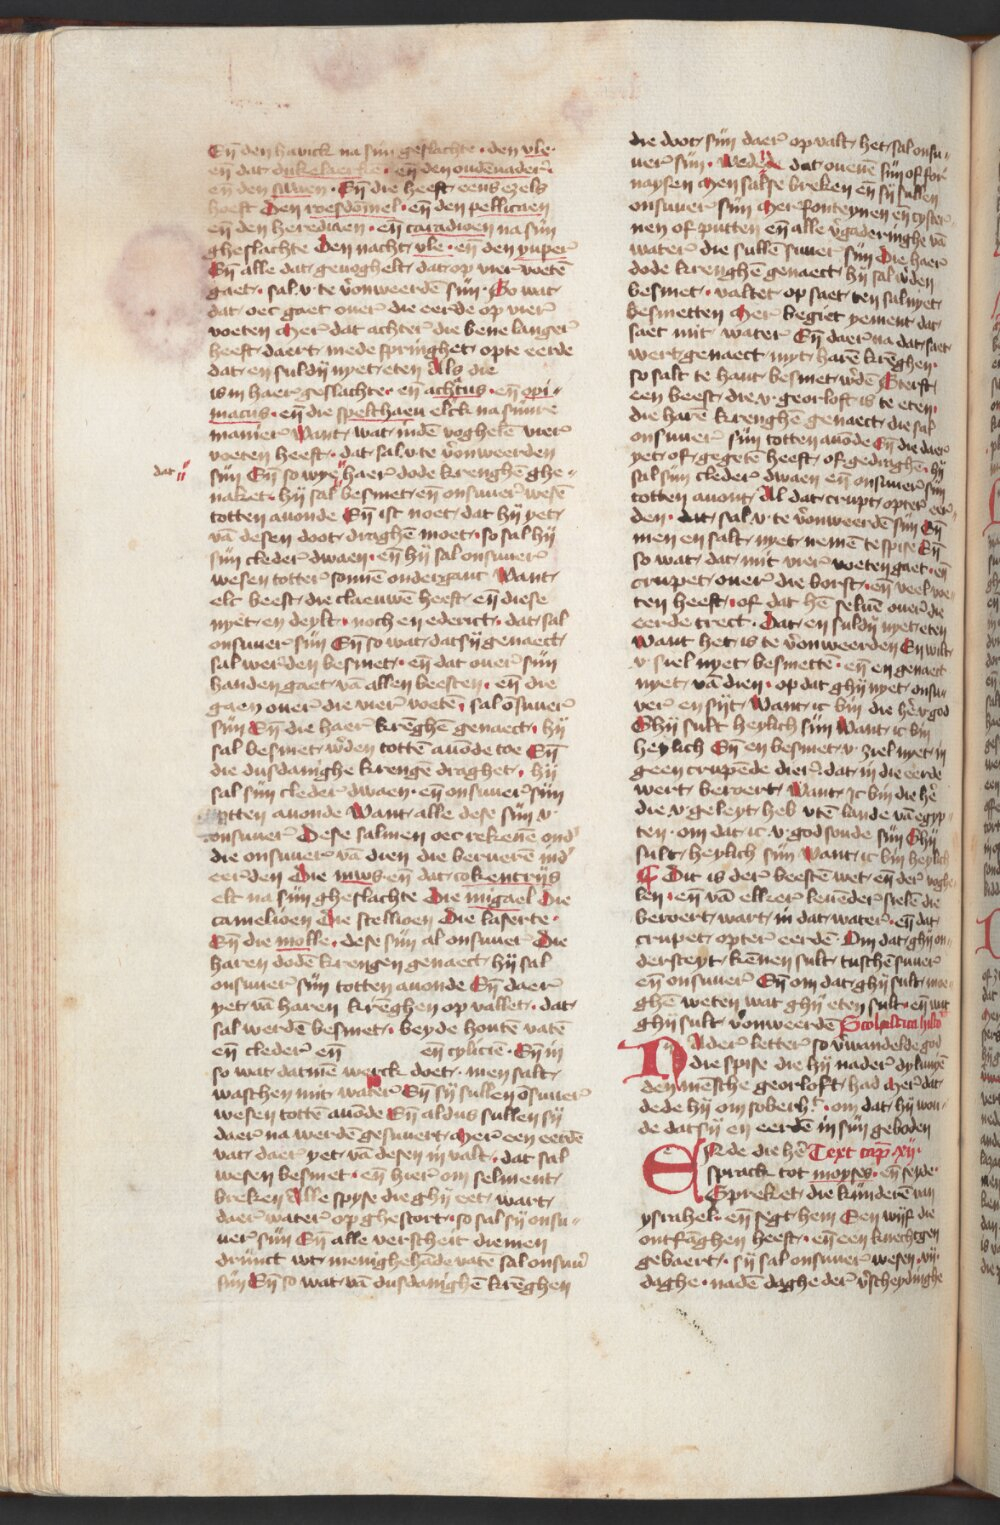 Eñ den havick na sijn geslachte · den vle ·
eñ dat dukelaerkie · eñ den oudēvader̄ ·
eñ den swaen · Eñ die heeft eens ezels
hoeft Den roesdomel · eñ den pellicaen
eñ den heredioen · eñ caradioen na sijn
gheslachte Den nacht vle · eñ den yuper
Eñ alle dat gevoghelt dat op vier voetē
gaet · sal v te v̄onweerdē sijn · So wat
dat oec gaet over die eerde op vier
voeten Mer dat achter die bene langer
heeft daert mede springhet opte eerde
dat en suldij nyet eten Als die
is in haer geslachte · eñ achtus · eñ opi-
macus · eñ die spelthaen elck na sijnre
manier Want wat indē voghelē vier
voeten heeft · dat sal v te v̄onweerden
dat
sijn Eñ so wye haer dode krenghē ghe-
naket · hij sal besmet en onsuuer wesē
totten auonde Eñ ist noet dat hij yet
vā desen doot draghen moet · so sal hij
sijn cleder dwaen · eñ hij sal onsuuer
wesen totter sonnē onderganc Want
elc beest die claeuwē heeft eñ diese
nyet en deylt · noch en ederict · dat sal
onsuuer sijn Eñ so wat datsij genaect
sal werden besmet · eñ dat ouer sijn
handen gaet vā allen beesten · eñ die
gaen ouer die vier voetē · sal ōsuuer
sijn Eñ die haer krēghē genaect · hij
sal besmet w̄den tottē auōde toe Eñ
die dusdanighe krengē draghet · hij
sal sijn cleder dwaen · eñ onsuuer sijn
totten auonde Want alle dese sijn v
onsuuer Dese salmen oec rekenē ond̄
die onsuuer vā dien die beruerē ind̄
eerden Die mws eñ dat cokentrijs
elc na sijn gheslachte Die migael Die
camelioen Die stellioen Die laserte ·
Eñ die molle · dese sijn al onsuuer Die
haren dodē krengen genaect hij sal
onsuuer sijn totten auonde Eñ daer
yet vā haren krēghen op vallet · dat
sal werdē besmet · beyde houtē vatē
eñ cleder eñ eñ cyliciē · Eñ in
so wat datmē werck doet · men salt
waschen mit water Eñ sij sullen ōsuuer
wesen tottē auōde Eñ aldus sullen sij
daer na werdē gesuuert · Mer een eerdē
vat daer yet vā desen in valt · dat sal
wesen besmet · eñ hier om selment
breken Alle spyse die ghij eet · wart
daer water op ghestort · so sal sij onsu-
uer sijn Eñ alle verscheit diemen
drinct wt menighehāde vatē sal onsuu̅
sijn Eñ so wat vā dusdanighē krēghen
die doot sijn daer op valt · het sal onsu-
uer sijn · Weder dat ouenē sijn of for-
naysen Men salse breken eñ sij sullen
onsuuer sijn Mer fonteynen eñ cyster-
nen of putten eñ alle v̄gaderinghe vā
water die sullē suuer sijn Die haer
dode krenghē genaect hij sal w̄den
besmet · valtet op saet ten sal nyet
besmetten Mer begiet yement dat
saet mit water Eñ daer na dat saet
wert genaect myt harē krēghen ·
so salt te hant besmet w̄den Sterft
een beest die v georloft is te eten ·
die harē krenghē genaect die sal
onsuuer sijn totten auōde Eñ die daer
yet of gegetē heeft of gedraghē · hij
sal sijn cleder dwaen eñ onsuuer sijn
totten auont Al dat crupt opter eer-
den · dat sal v te v̄onweerdē sijn Eñ
men en salt nyet nemē te spise Eñ
so wat dat mit vier voeten gaet · eñ
crupet ouer die borst · eñ veel voe-
ten heeft · of dat hē seluē ouer die
eerde trect · Dat en suldij nyet eten
Want het is te v̄onweerden En wilt
v siel nyet besmettē · eñ en genaect
nyet vā dien · op dat ghij nyet onsu-
uer en sijt Want ic bin die hē v god
Ghij sult heylich sijn Want ic bin
heylich Eñ en besmet v ziel nyet in
geen crupēde dier · dat in die eerde
wert beroert Want Jc bin die hē
die v geleyt heb vtē lande vā egyp-
ten · om dat ic v god soude sijn Ghij
sult heylich sijn Want ic bin heylich
¶ Dit is der beestē wet eñ der voghe-
len · eñ vā elker leuēder sielē die
beroert wart in dat water · eñ dat
crupet opter eerdē · Om dat ghij on-
dersteyt kēnen sult tusschē suuer
eñ onsuuer Eñ om dat ghij sult moe-
ghē weten wat ghij eten sult · eñ wat
ghij sult v̄onweerdē Scolastica histo
Nader letter so v̄wandelde god
die spise die hij nader dyluuiē
den mēsche georloft had Mer dat
dede hij om soberh · om dat hij wou-
de datsij en eerdē in sijn geboden
Ende die hē Text cap̄ · xij ·
sprack tot moyses · eñ seyde ·
Spreket die kijnderē van
ysrahel · eñ segt hem Een wijf die
ontfāghen heeft · eñ een knechtgen
gebaert · sij sal onsuuer wesen · vij ·
daghe · nadē daghe der v̄scheydinghe